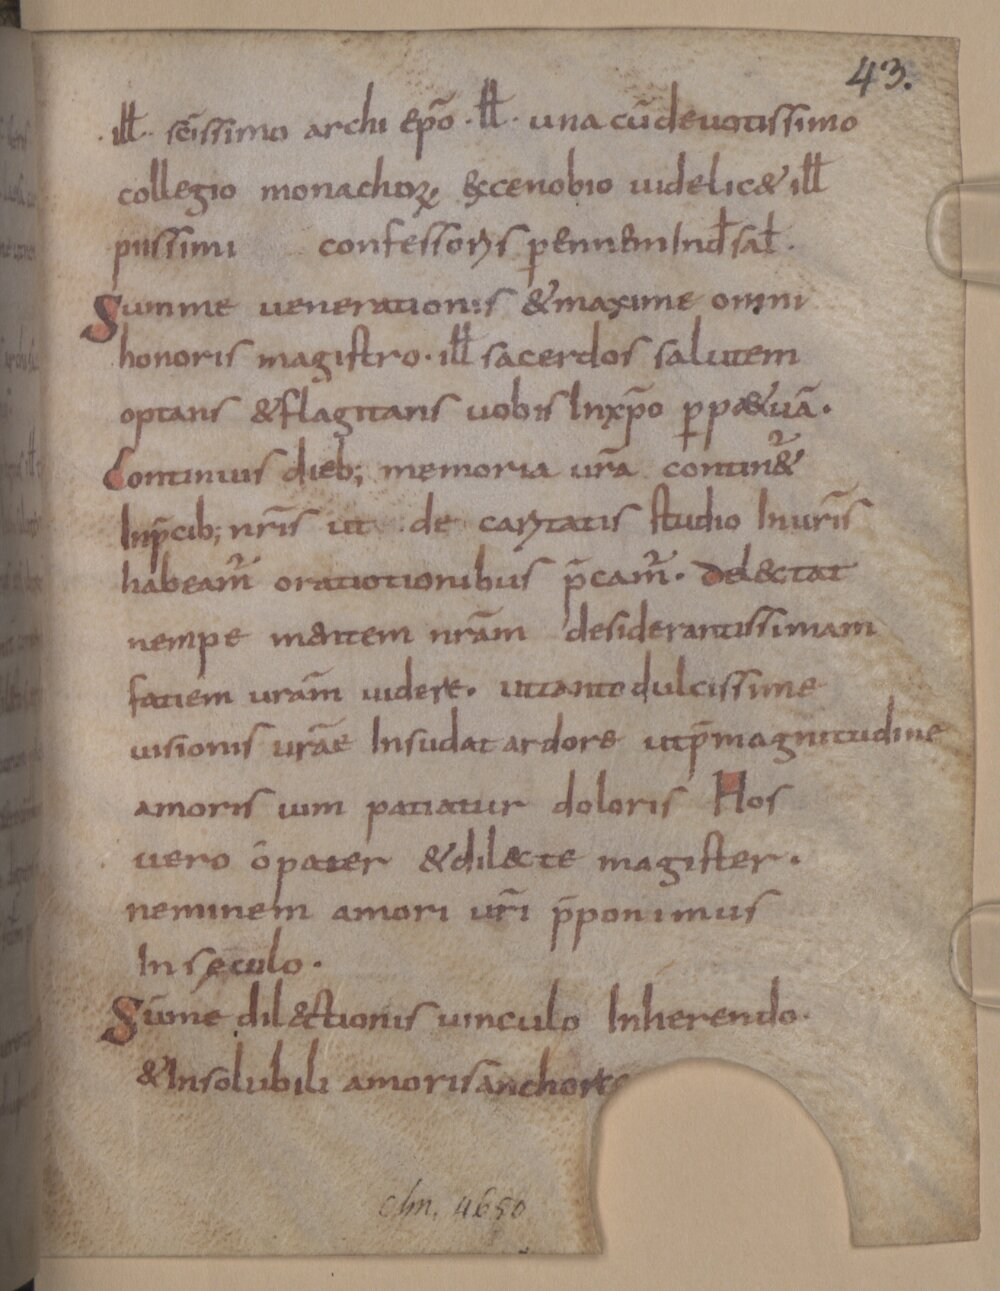 43.
· iłł · sc̄issimo archi ep̄o · łł · una cū deuotissimo
collegio monachoꝝ. & cenobio uidelic& iłł
piissimi confessoris ꝑennem Ind̄ sał.
Summe uenerationis & maxime omni
honoris magistro · iłł sacerdos salutem
optans & flagitans uobis Inxp̄o ꝑp&uā.
Continuis dieb; memoria ur̄a contin&ᷣ
Inp̄cib; nr̄is ut de caritatis studio Inur̄is
habeam̄ oratiotionibus p̄cam̄. delectat
nempe mentem nrām desiderantissimam
fatiem urām uidere. ut tanto dulcissime
uisionis urāe Insudat ardore ut p̄ magnitudine
amoris uim patiatur doloris Hos
uero ō pater & dilecte magister.
neminem amori ur̄i p̄ponimus
In sęculo.
Sūme dil&ctionis uinculo Inherendo.
& Insolubili amoris anchore
clm. 4650